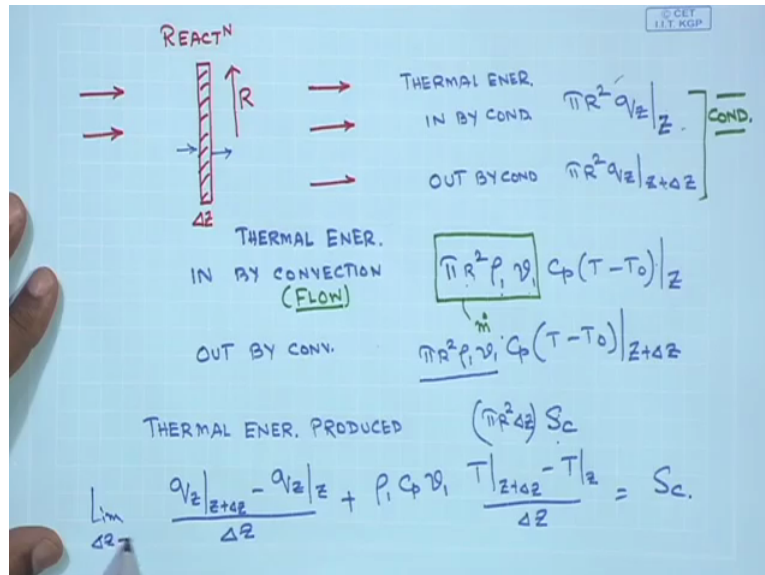 © CET
I.I.T. KGP
REACTᴺ
R
ΔZ
THERMAL ENER.
IN BY COND. πR² q_z|_z.
OUT BY COND πR² q_z|_{z+Δz}
COND.
THERMAL ENER.
IN BY CONVECTION πR² ρ₁ v₁ Cp(T-T₀)|_z
(FLOW)
ṁ
OUT BY CONV. πR²ρ₁v₁ Cp(T-T₀)|_{z+Δz}
THERMAL ENER. PRODUCED (πR²Δz) Sc
Lim Δz- (q_z|_{z+Δz} - q_z|_z)/Δz + ρ₁ Cp v₁ (T|_{z+Δz} - T|_z)/Δz = Sc.